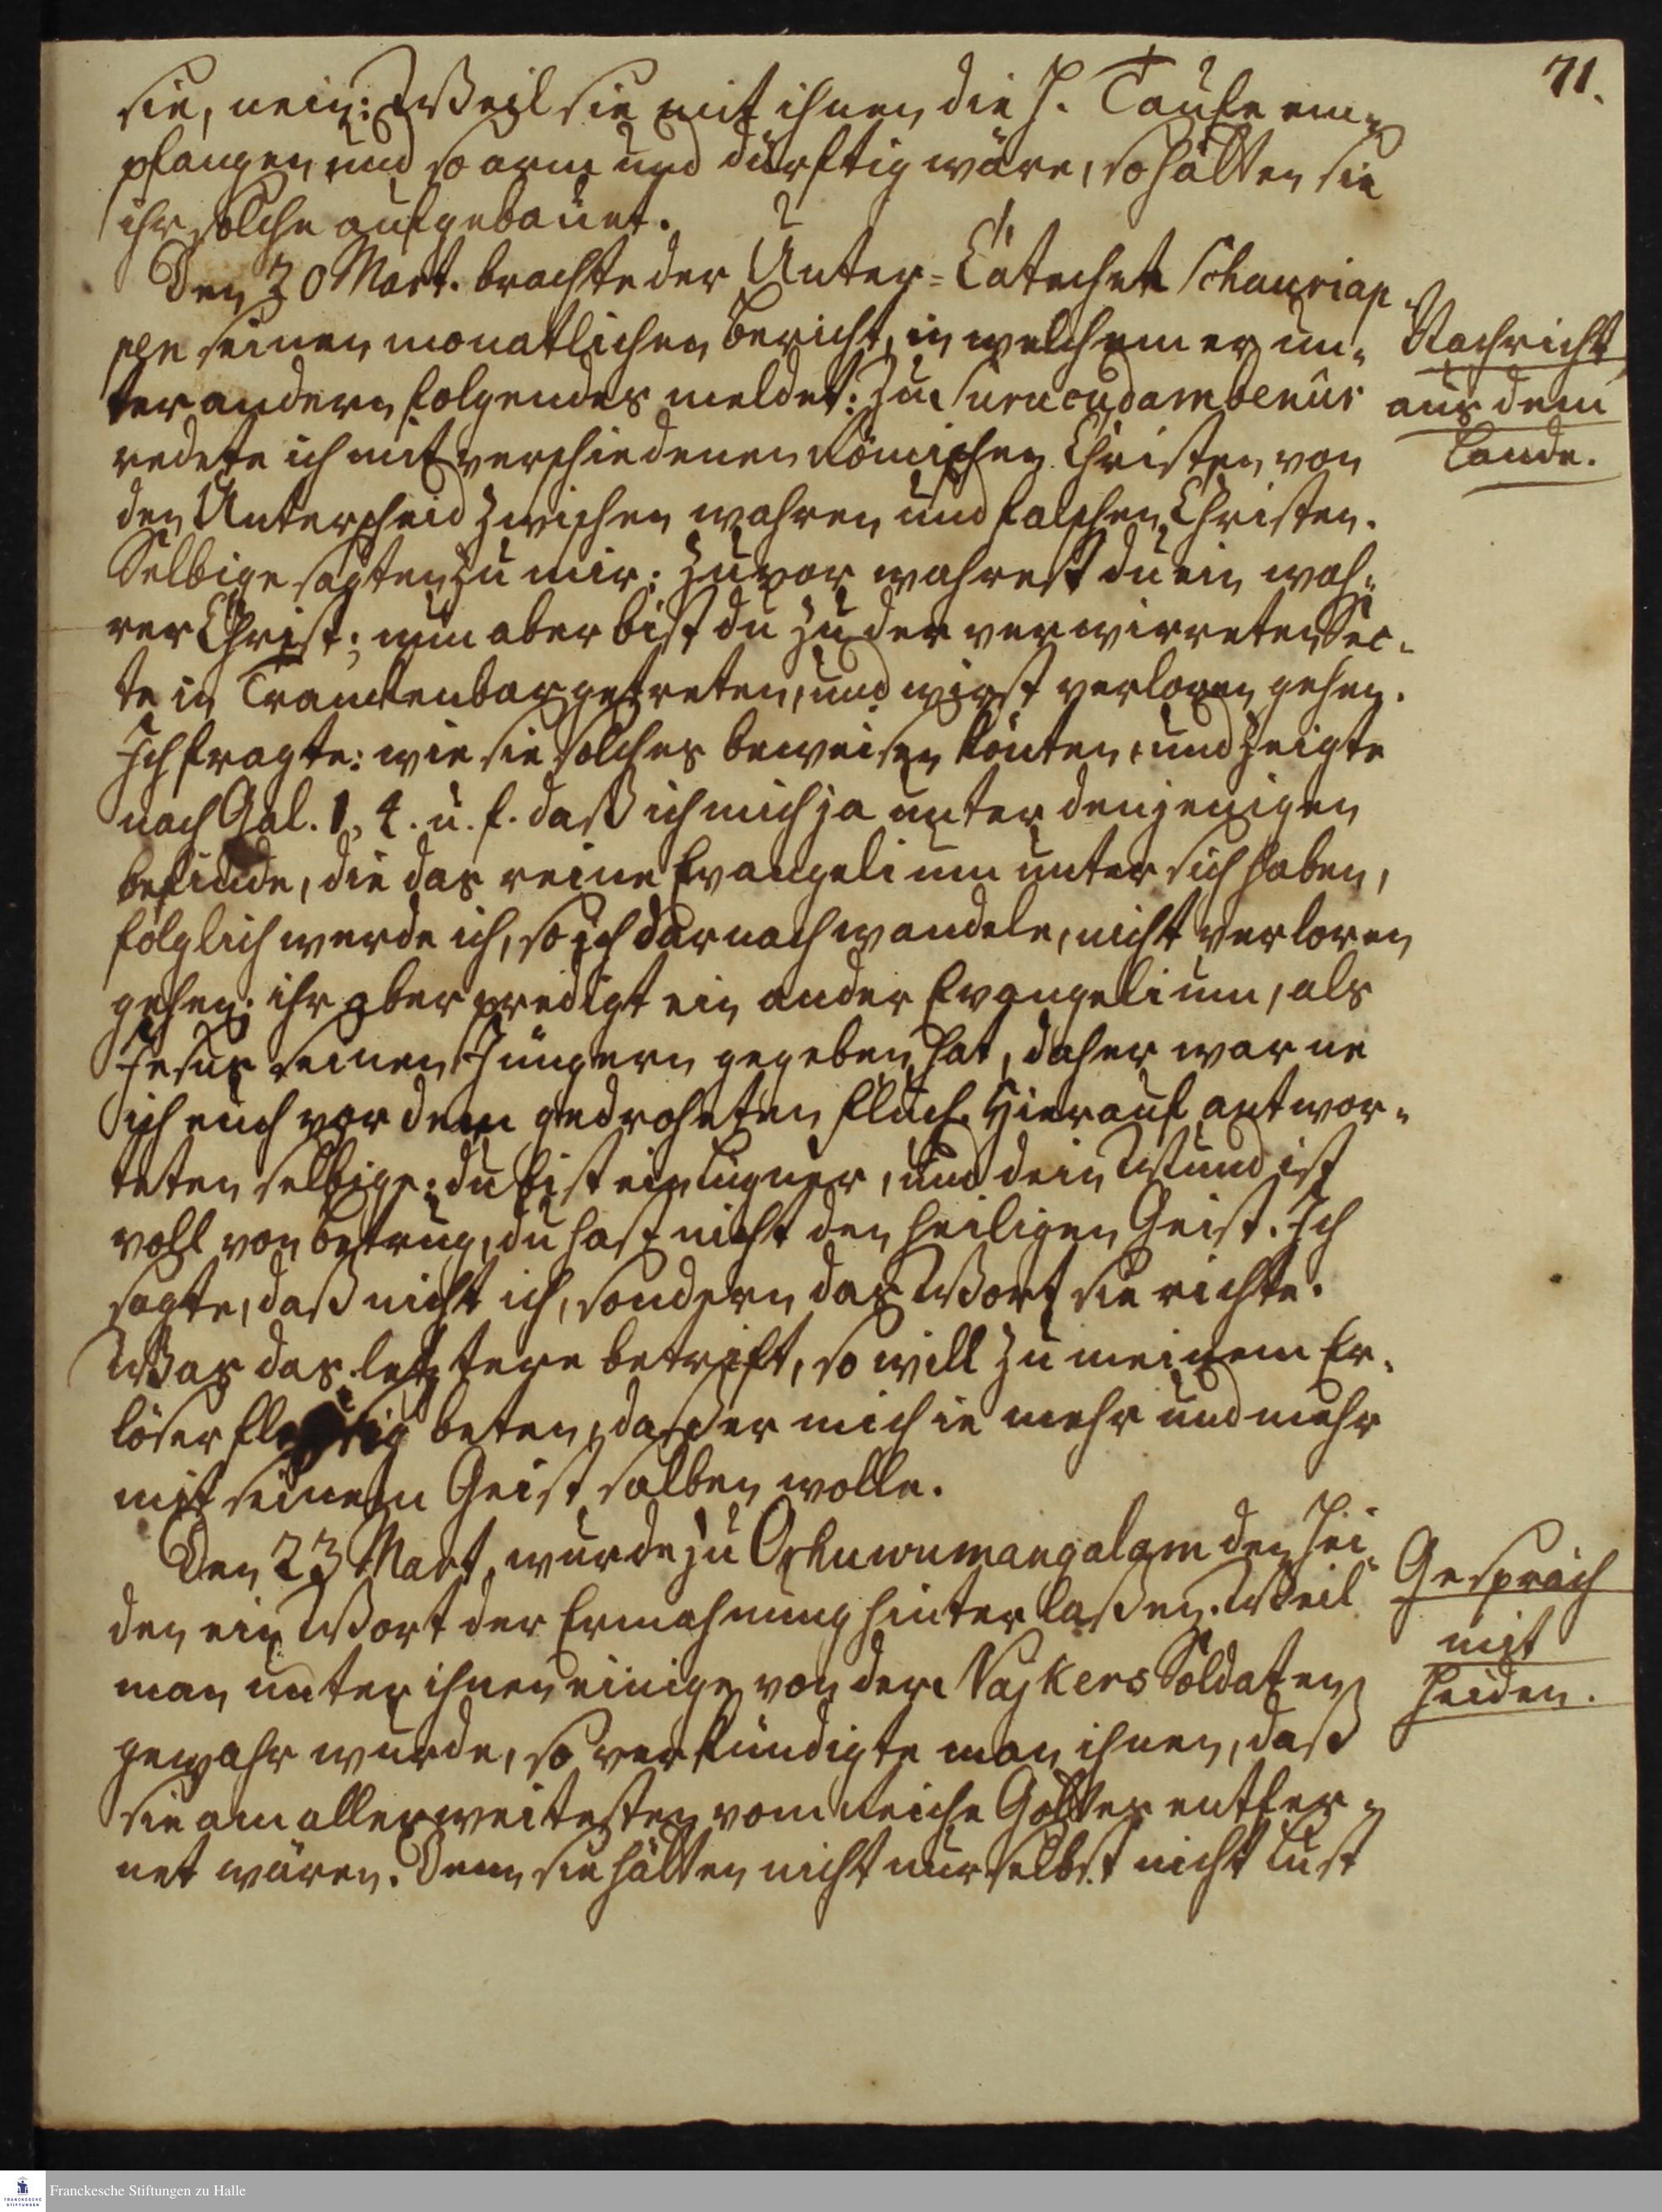 71.
sie, nein: Weil sie mit ihnen die H. Taufe em-
pfangen, und so arm und dürftig wäre, so hätten sie
ihr solche aufgebauet.
Den 20 Mart. brachte der Unter-Catechet Schauriap
pen seinen monatlichen Bericht, in welchem er un-
ter andern folgendes meldet: Zu Surucudambenur
redete ich mit verschiedenen Römischen Christen von
den Unterscheid zwischen wahren und falschen Christen.
Selbige sagten zu mir: Zuvor wahrest du ein wah-
rer Christ; nun aber bist du zu der verwirreten Sec-
te in Tranckenbar getreten, und wirst verloren gehen.
Ich fragte: wie sie solches beweisen könten, und zeigte
nach Gal. 1, 4. u. f. daß ich mich ja unter denjenigen
befinde, die das reine Evangelium unter sich haben,
folglich werde ich, so ich darnach wandele, nicht verloren
gehen. ihr aber predigt ein ander Evangelium, als
Jesus seinen Jüngern gegeben hat, daher warne
ich euch vor dem gedroheten Fluch. Hierauf antwor-
teten selbige: du bist ein Lügner, und dein Mund ist
voll von Betrug, du hast nicht den heiligen Geist. Ich
sagte, daß nicht ich, sondern das Wort sie richte.
Was das letztere betrift, so will zu meinem Er-
löser fleißig beten, daß er mich ie mehr und mehr
mit seinem Geist salben wolle.
Den 23 Mart. wurde zu Orhuwumangalam den Hei-
den ein Wort der Ermahnung hinterlaßen. Weil
man unter ihnen einige von der Najkers Soldaten
gewahr wurde, so verkündigte man ihnen, daß
sie am allerweitesten vom Reiche Gottes entfer-
net wären. Denn sie hätten nicht nur selbst nicht Lust
Nachricht
aus dem
Lande.
Gespräch
mit
Heiden.
FRANCKESCHE
STIFTUNGEN
Franckesche Stiftungen zu Halle